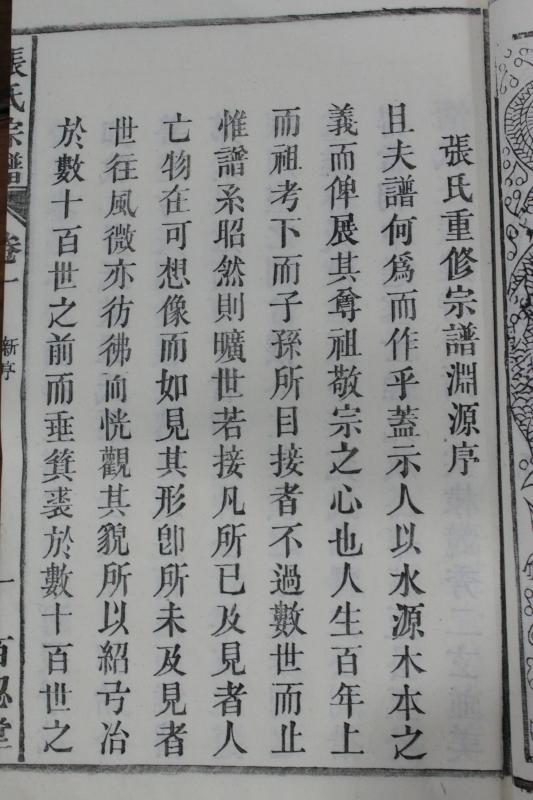 張氏重修宗譜淵源序
且夫譜何爲而作乎蓋示人以水源木本之
義而俾展其尊祖敬宗之心也人生百年上
而祖考下而子孫所目接者不過數世而止
惟譜系昭然則曠世若接凡所已及見者人
亡物在可想像而如見其形卽所未及見者
世往風微亦彷彿而恍觀其貌所以紹弓冶
於數十百世之前而垂箕裘於數十百世之
張氏宗譜
卷一
新序
一
百忍堂